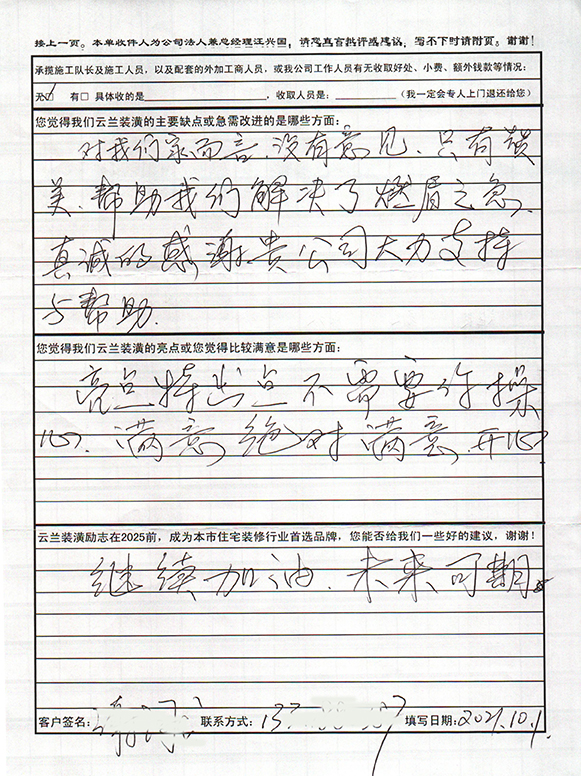 接上一页。本单收件人为公司法人兼总经理汪兴国，请您直言批评或建议，写不下时请附页。谢谢！
承揽施工队长及施工人员，以及配套的外加工商人员，或我公司工作人员有无收取好处、小费、额外钱款等情况：
无☑ 有□ 具体收的是 ，收取人员是： （我一定会专人上门退还给您）
您觉得我们云兰装潢的主要缺点或急需改进的是哪些方面：
对我们家而言，没有意见，只有赞
美，帮助我们解决了燃眉之急，
真诚的感谢贵公司大力支持
与帮助.
您觉得我们云兰装潢的亮点或您觉得比较满意是哪些方面：
亮点特出点不需要你操
心，满意绝对满意，开心
云兰装潢励志在2025前，成为本市住宅装修行业首选品牌，您能否给我们一些好的建议，谢谢！
继续加油，未来可期
客户签名： 联系方式：137 填写日期：2021.10.1.